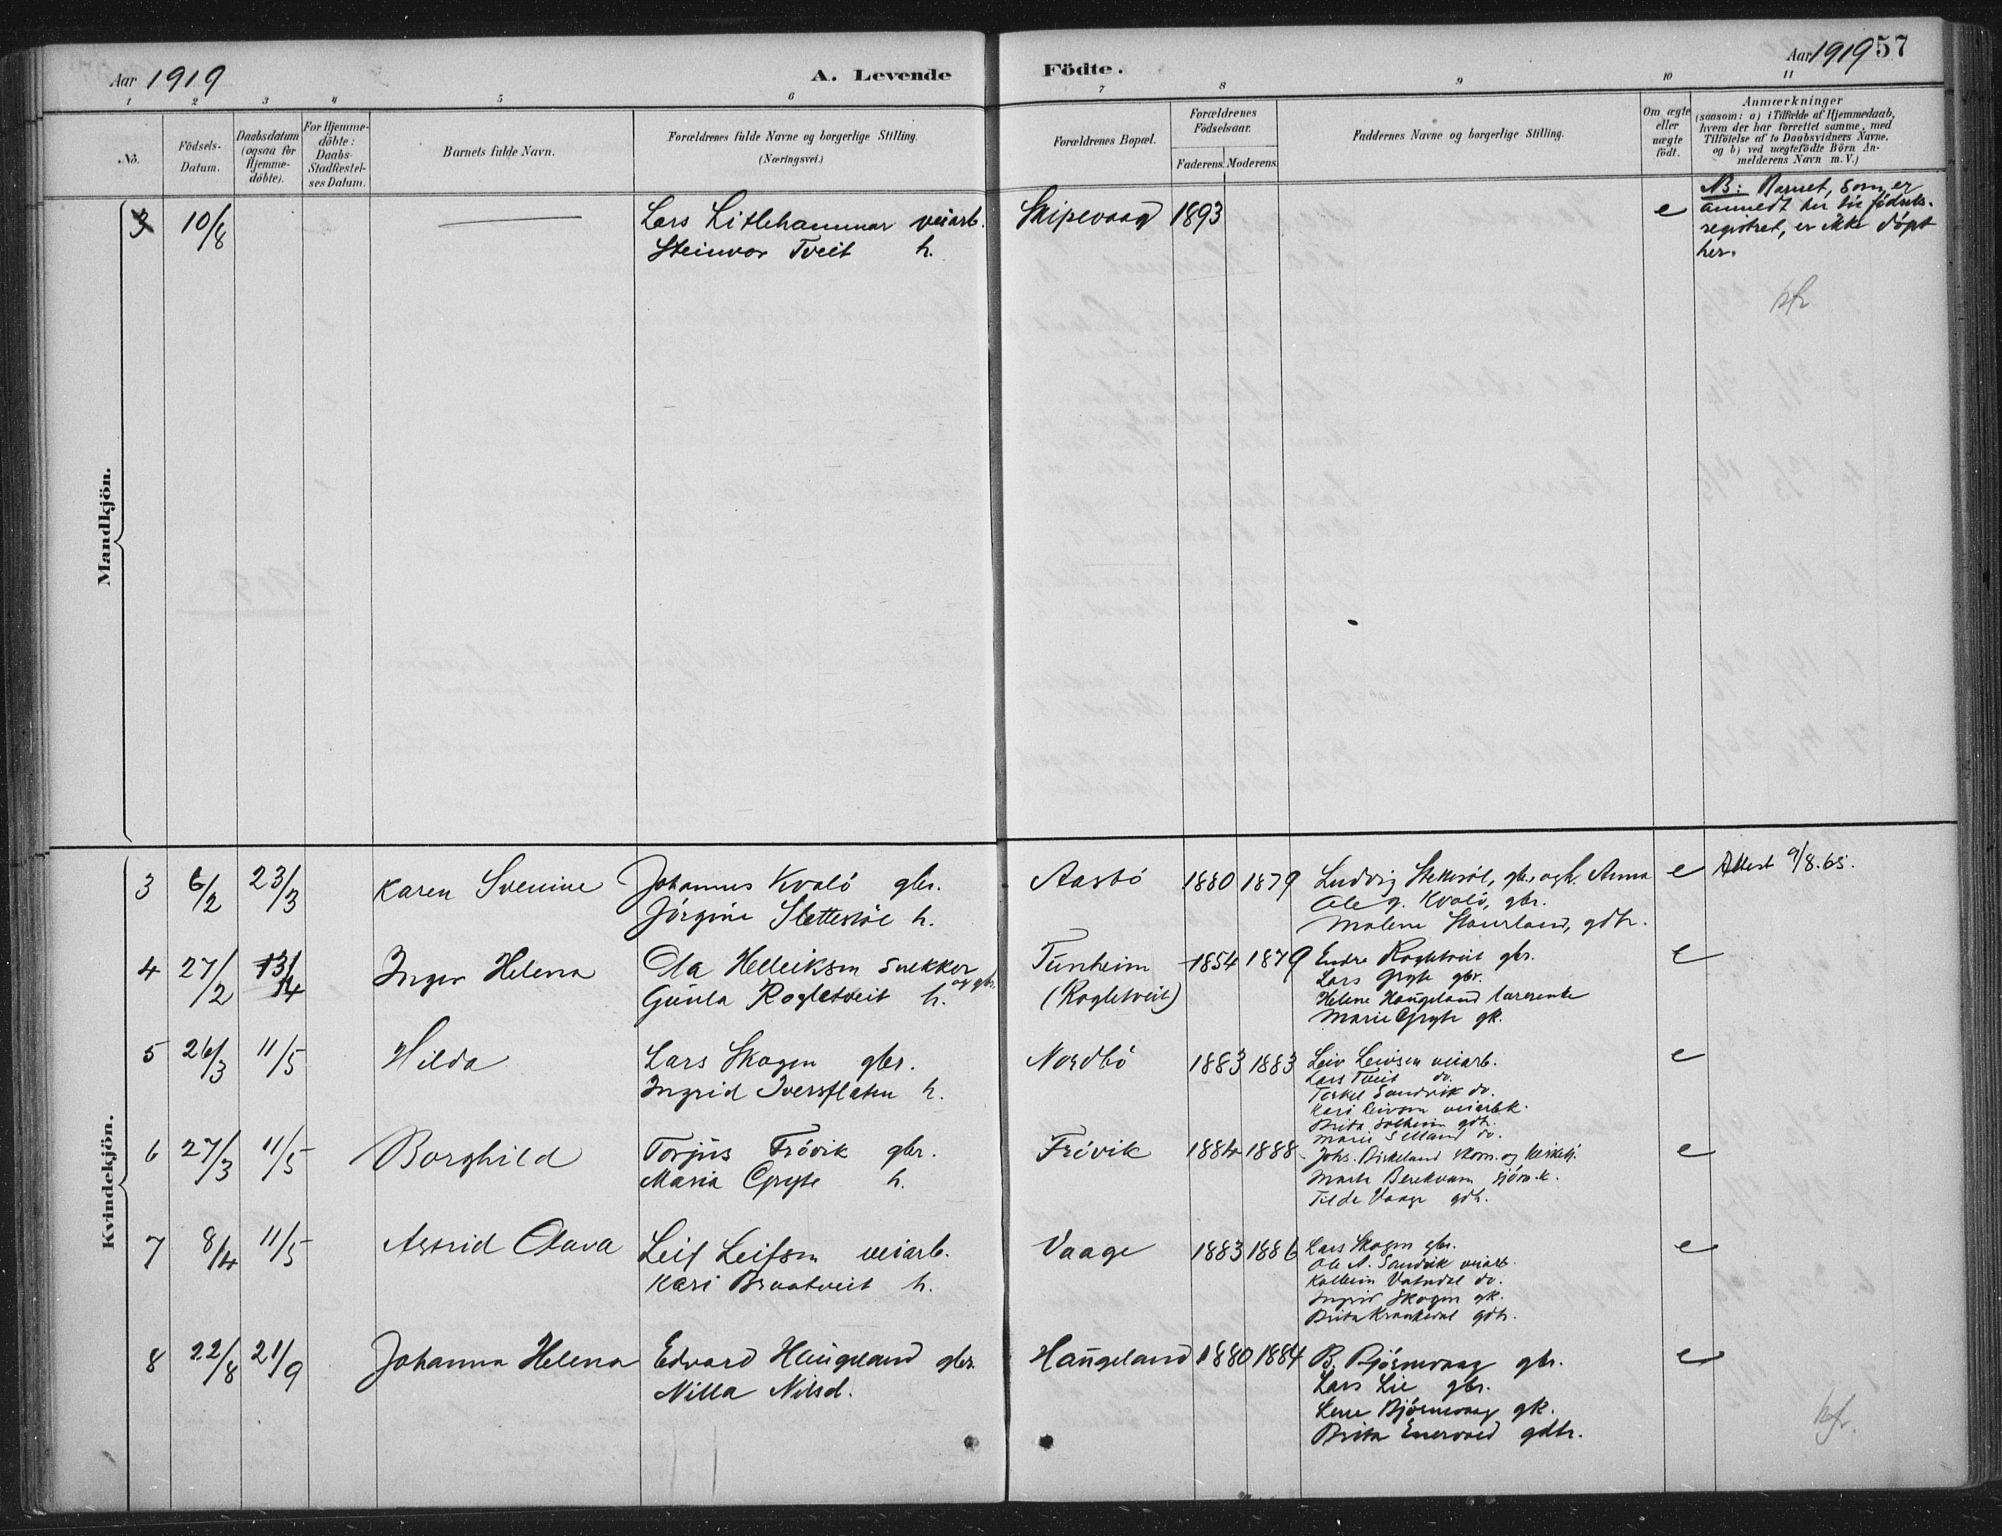 Aar 1919
A. Levende Födte.
Aar 1919 57
1 2 3 4 5 6 7 8 9 10 11
No.
Födsels-Datum.
Daabsdatum (ogsaa for Hjemme-döbte).
For Hjemme-döbte: Daabs-Stadfæstel-ses Datum.
Barnets fulde Navn.
Forældrenes fulde Navne og borgerlige Stilling. (Næringsvei.)
Forældrenes Bopæl.
Forældrenes Födselsaar.
Faderens. Moderens.
Faddernes Navne og borgerlige Stilling.
Om ægte eller uægte födt.
Anmærkninger
(saasom: a) i Tilfælde af Hjemmedaab, hvem der har forrettet samme, med Tilföielse af to Daabsvidners Navne. og b) ved uægtefödte Börn An-melderens Navn m. V.)
Mandkjön.
3 10/8 — Lars Litlehammar veiarb. Skipevaag 1893 e NB: Barnet, som er
Steinvor Tveit h. anmeldt her til fødsels-
registret, er ikke døpt
her.
Kvindekjön.
3 6/2 23/3 Karen Svenine Johannes Kvalö gbr. Aasbö 1880 1879 Ludvig Stettesöl, gbr. og h. Anna e Attest 9/8.65.
Jörgine Slettesköl h. Ole G. Kvalö, gbr.
Malene Staurland, gdtr.
4 27/2 13/4 Inger Helena Ola Helleiksen snekker og gbr. Tunheim 1854 1879 Endre Rogletveit gbr. e
Gunla Rogletveit h. (Rogletveit) Lars Gryte gbr.
Helene Haugeland lærerenke
Marie Gryte gk.
5 26/3 11/5 Hilda Lars Skogen gbr. Nordbö 1883 1883 Leiv Leivsen veiarb. e
Ingrid Iversflaten h. Lars Tveit do.
Torkel Sandvik do.
Kari Leivsen veiarb.k.
Brita Solheim gdtr.
Marie Selland do.
6 27/3 11/5 Borghild Torjus Frövik gbr. Frövik 1884 1888 Johs. Birkeland skom. og kirketj. e
Maria Gryte h. Marta Berekvam sjöm.k.
Tilde Vaage gdtr.
7 8/4 11/5 Astrid Olava Leif Leifsen veiarb. Vaage 1883 1886 Lars Skogen gbr. e
Kari Braatveit h. Ole A. Sandvik veiarb.
Kolbein Vatndal do.
Ingrid Skogen gk.
Brita Kvankedal gdtr.
8 22/8 21/9 Johanna Helena Edvard Haugeland gbr. Haugeland 1880 1884 B. Björnevaag gbr. e
Nilla Nilsd. Lars Lie gbr.
Lene Björnevaag gk.
Brita Enervold gdtr.